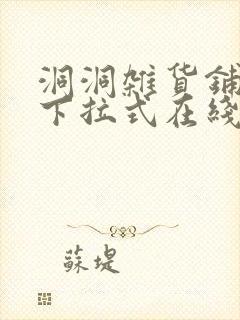 洞洞雜貨鋪
下拉式在綫
蘇堤